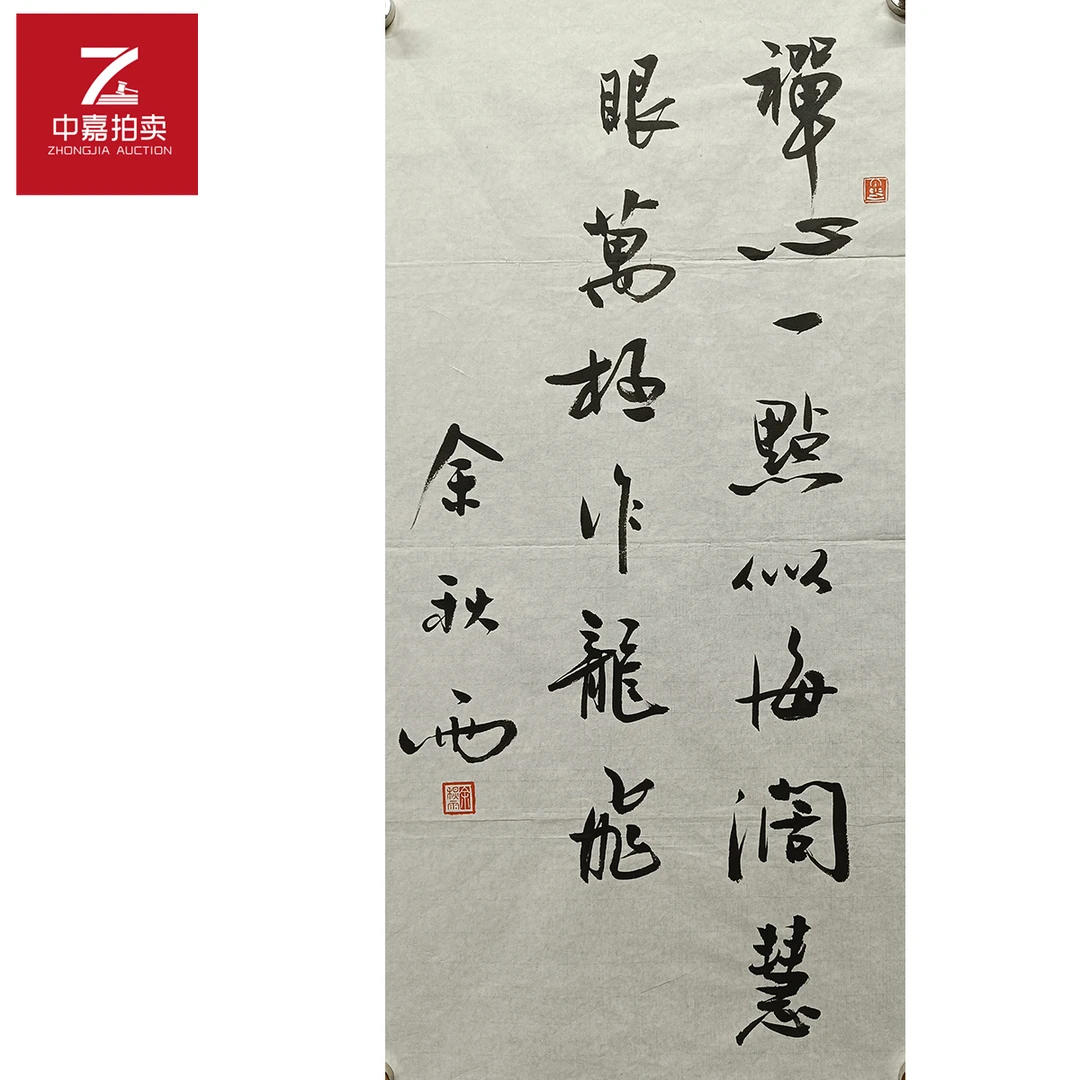 中嘉拍卖
ZHONGJIA AUCTION
禪心一點似海濶慧
眼萬極作龍飛
余秋雨